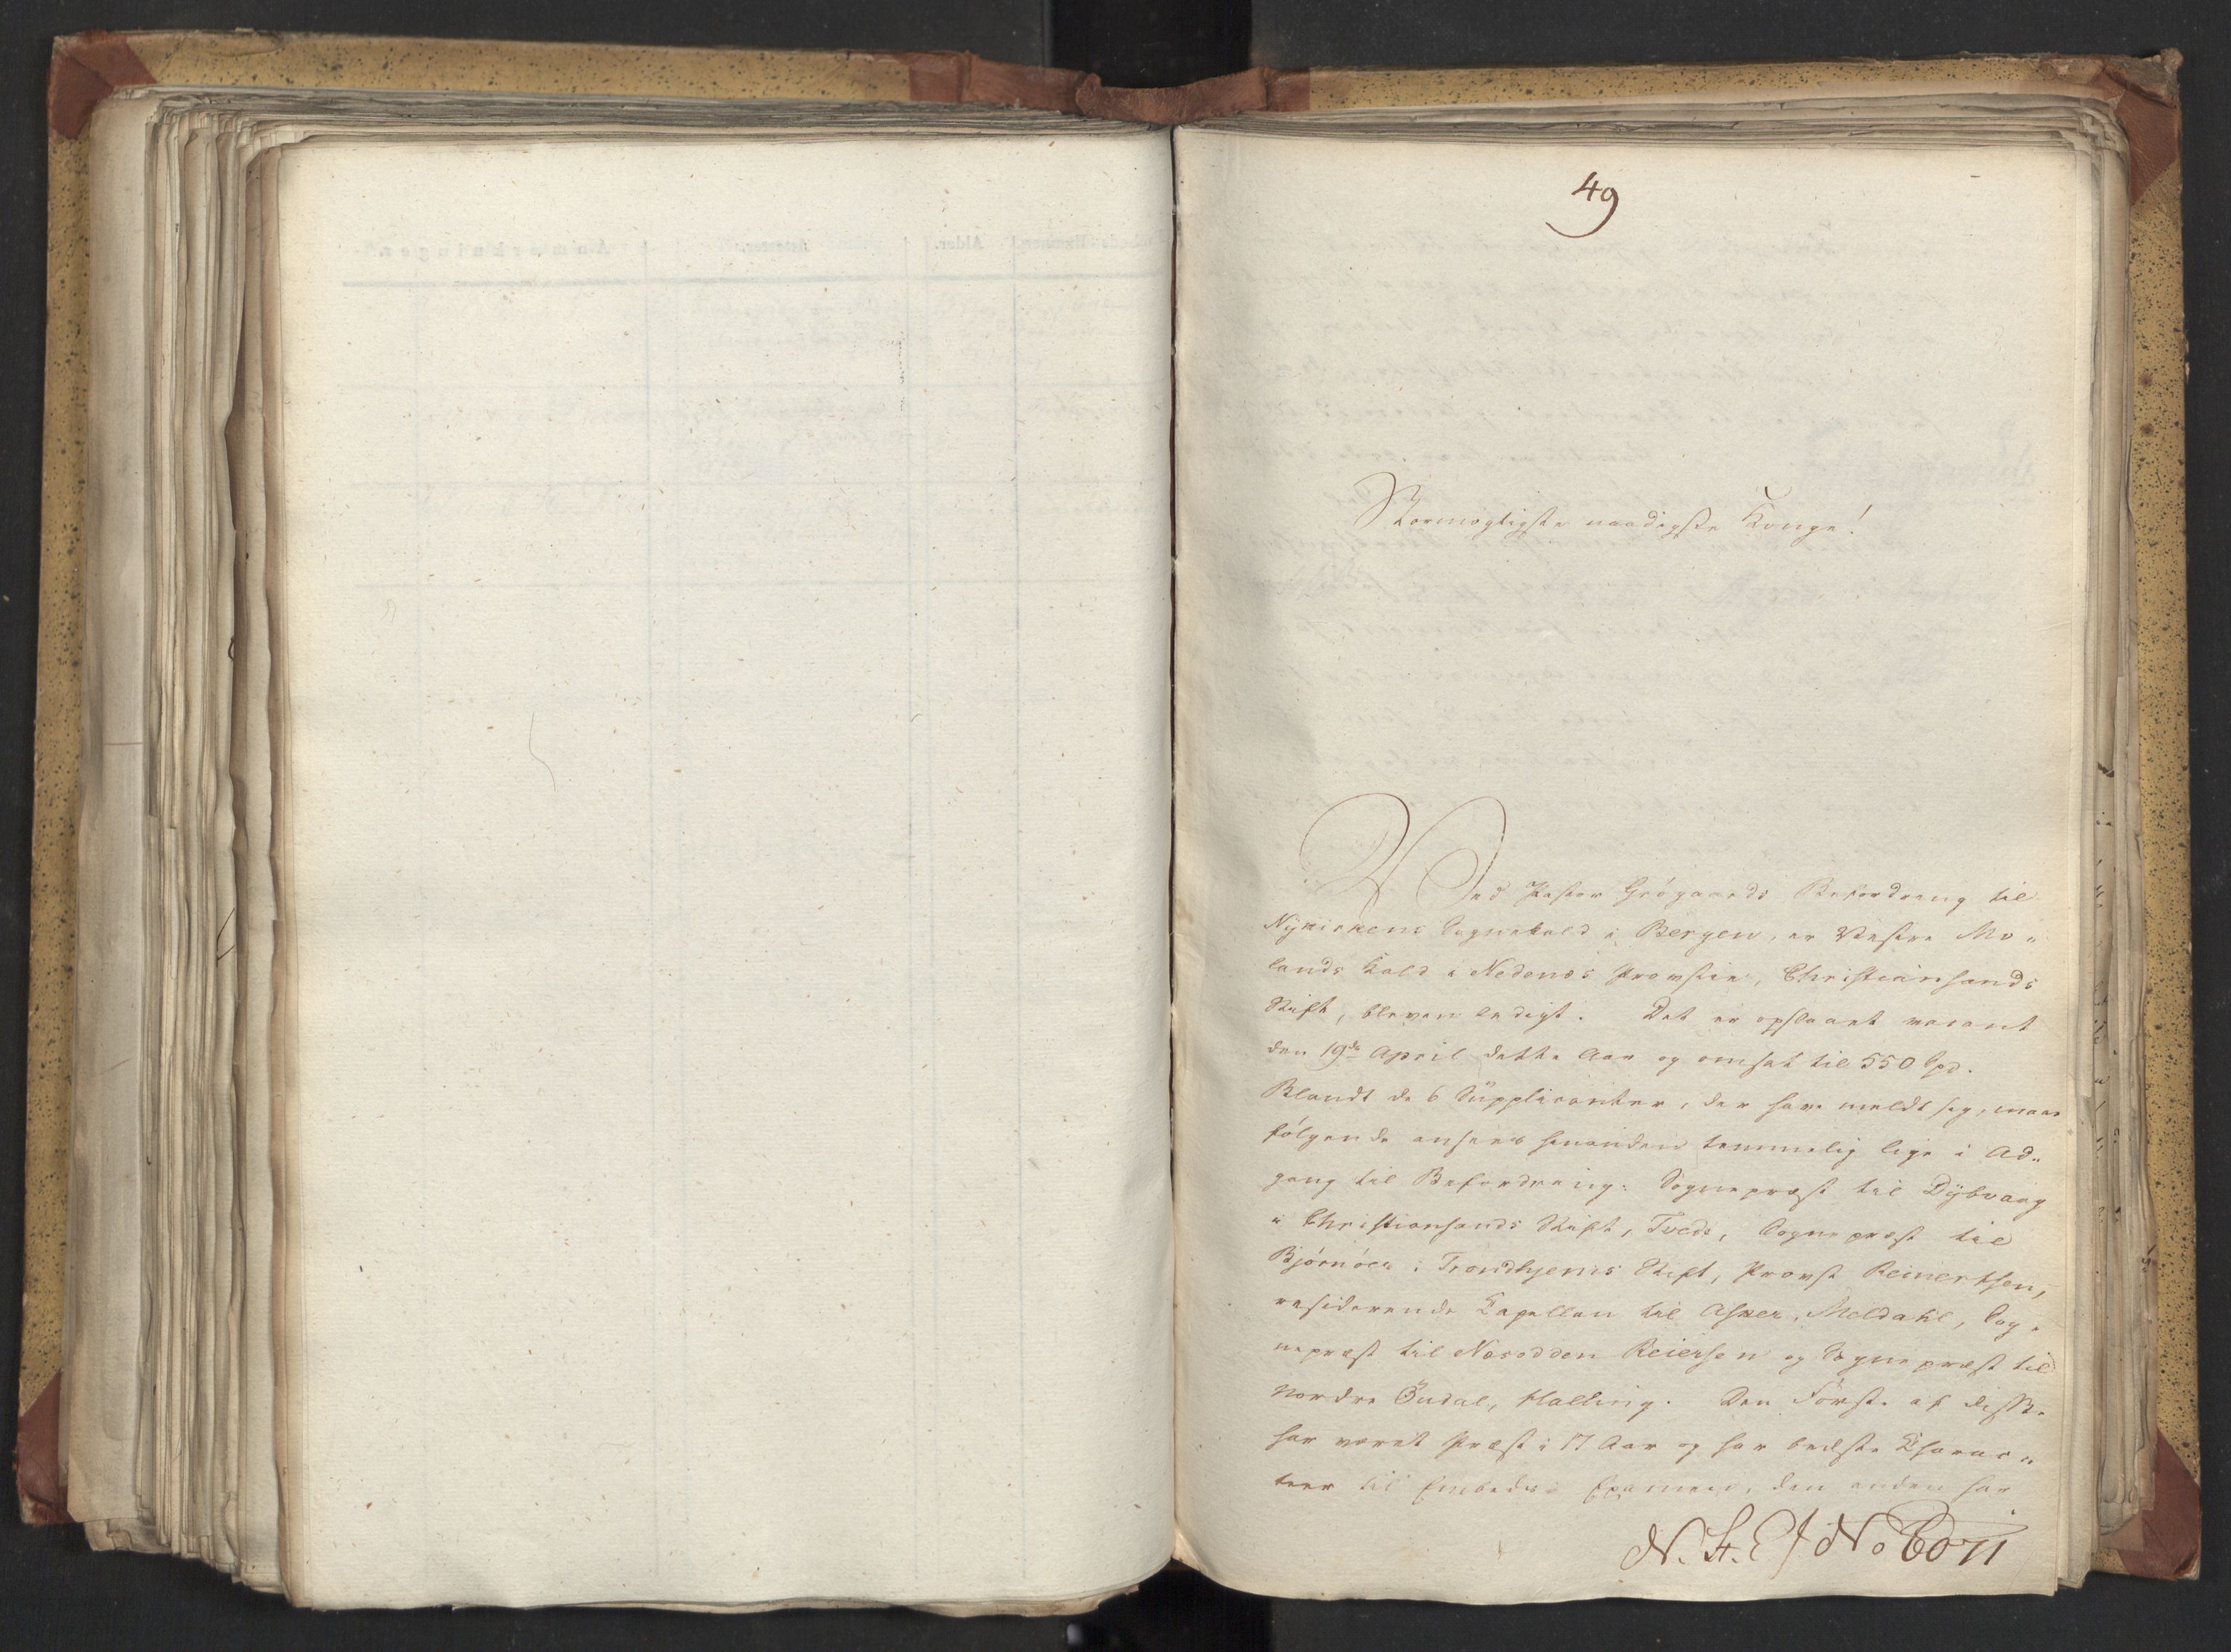 49
Stormægtigste naadigste Konge!
Ved Pastor Grøgaards Befordring til
Nykirkens Sognekald i Bergen, er Vestre Mo-
lands Kald i Nedenæs Provstie, Christiansands
Stift, bleven ledigt. Det er opslaaet vacant
den 19de April dette Aar og omsat til 550 Spd.
Blandt de 6 Supplicanter, der have meldt sig, maae
følgende ansees hinanden temmelig lige i Ad-
gang til Befordring: Sognepræst til Dybvaag
i Christiansands Stift, Tvede, Sognepræst til
Bjørnøer i Trondhjems Stift, Provst Reinertsen,
residerende Capellan til Asker, Meldahl, Sog-
nepræst til Næsodden Reiersen og Sognepræst til
Nordre Oudal, Halling. Den Første af disse
har været Præst i 17 Aar og har bedste Charac-
teer til Embeds Examen, den anden har